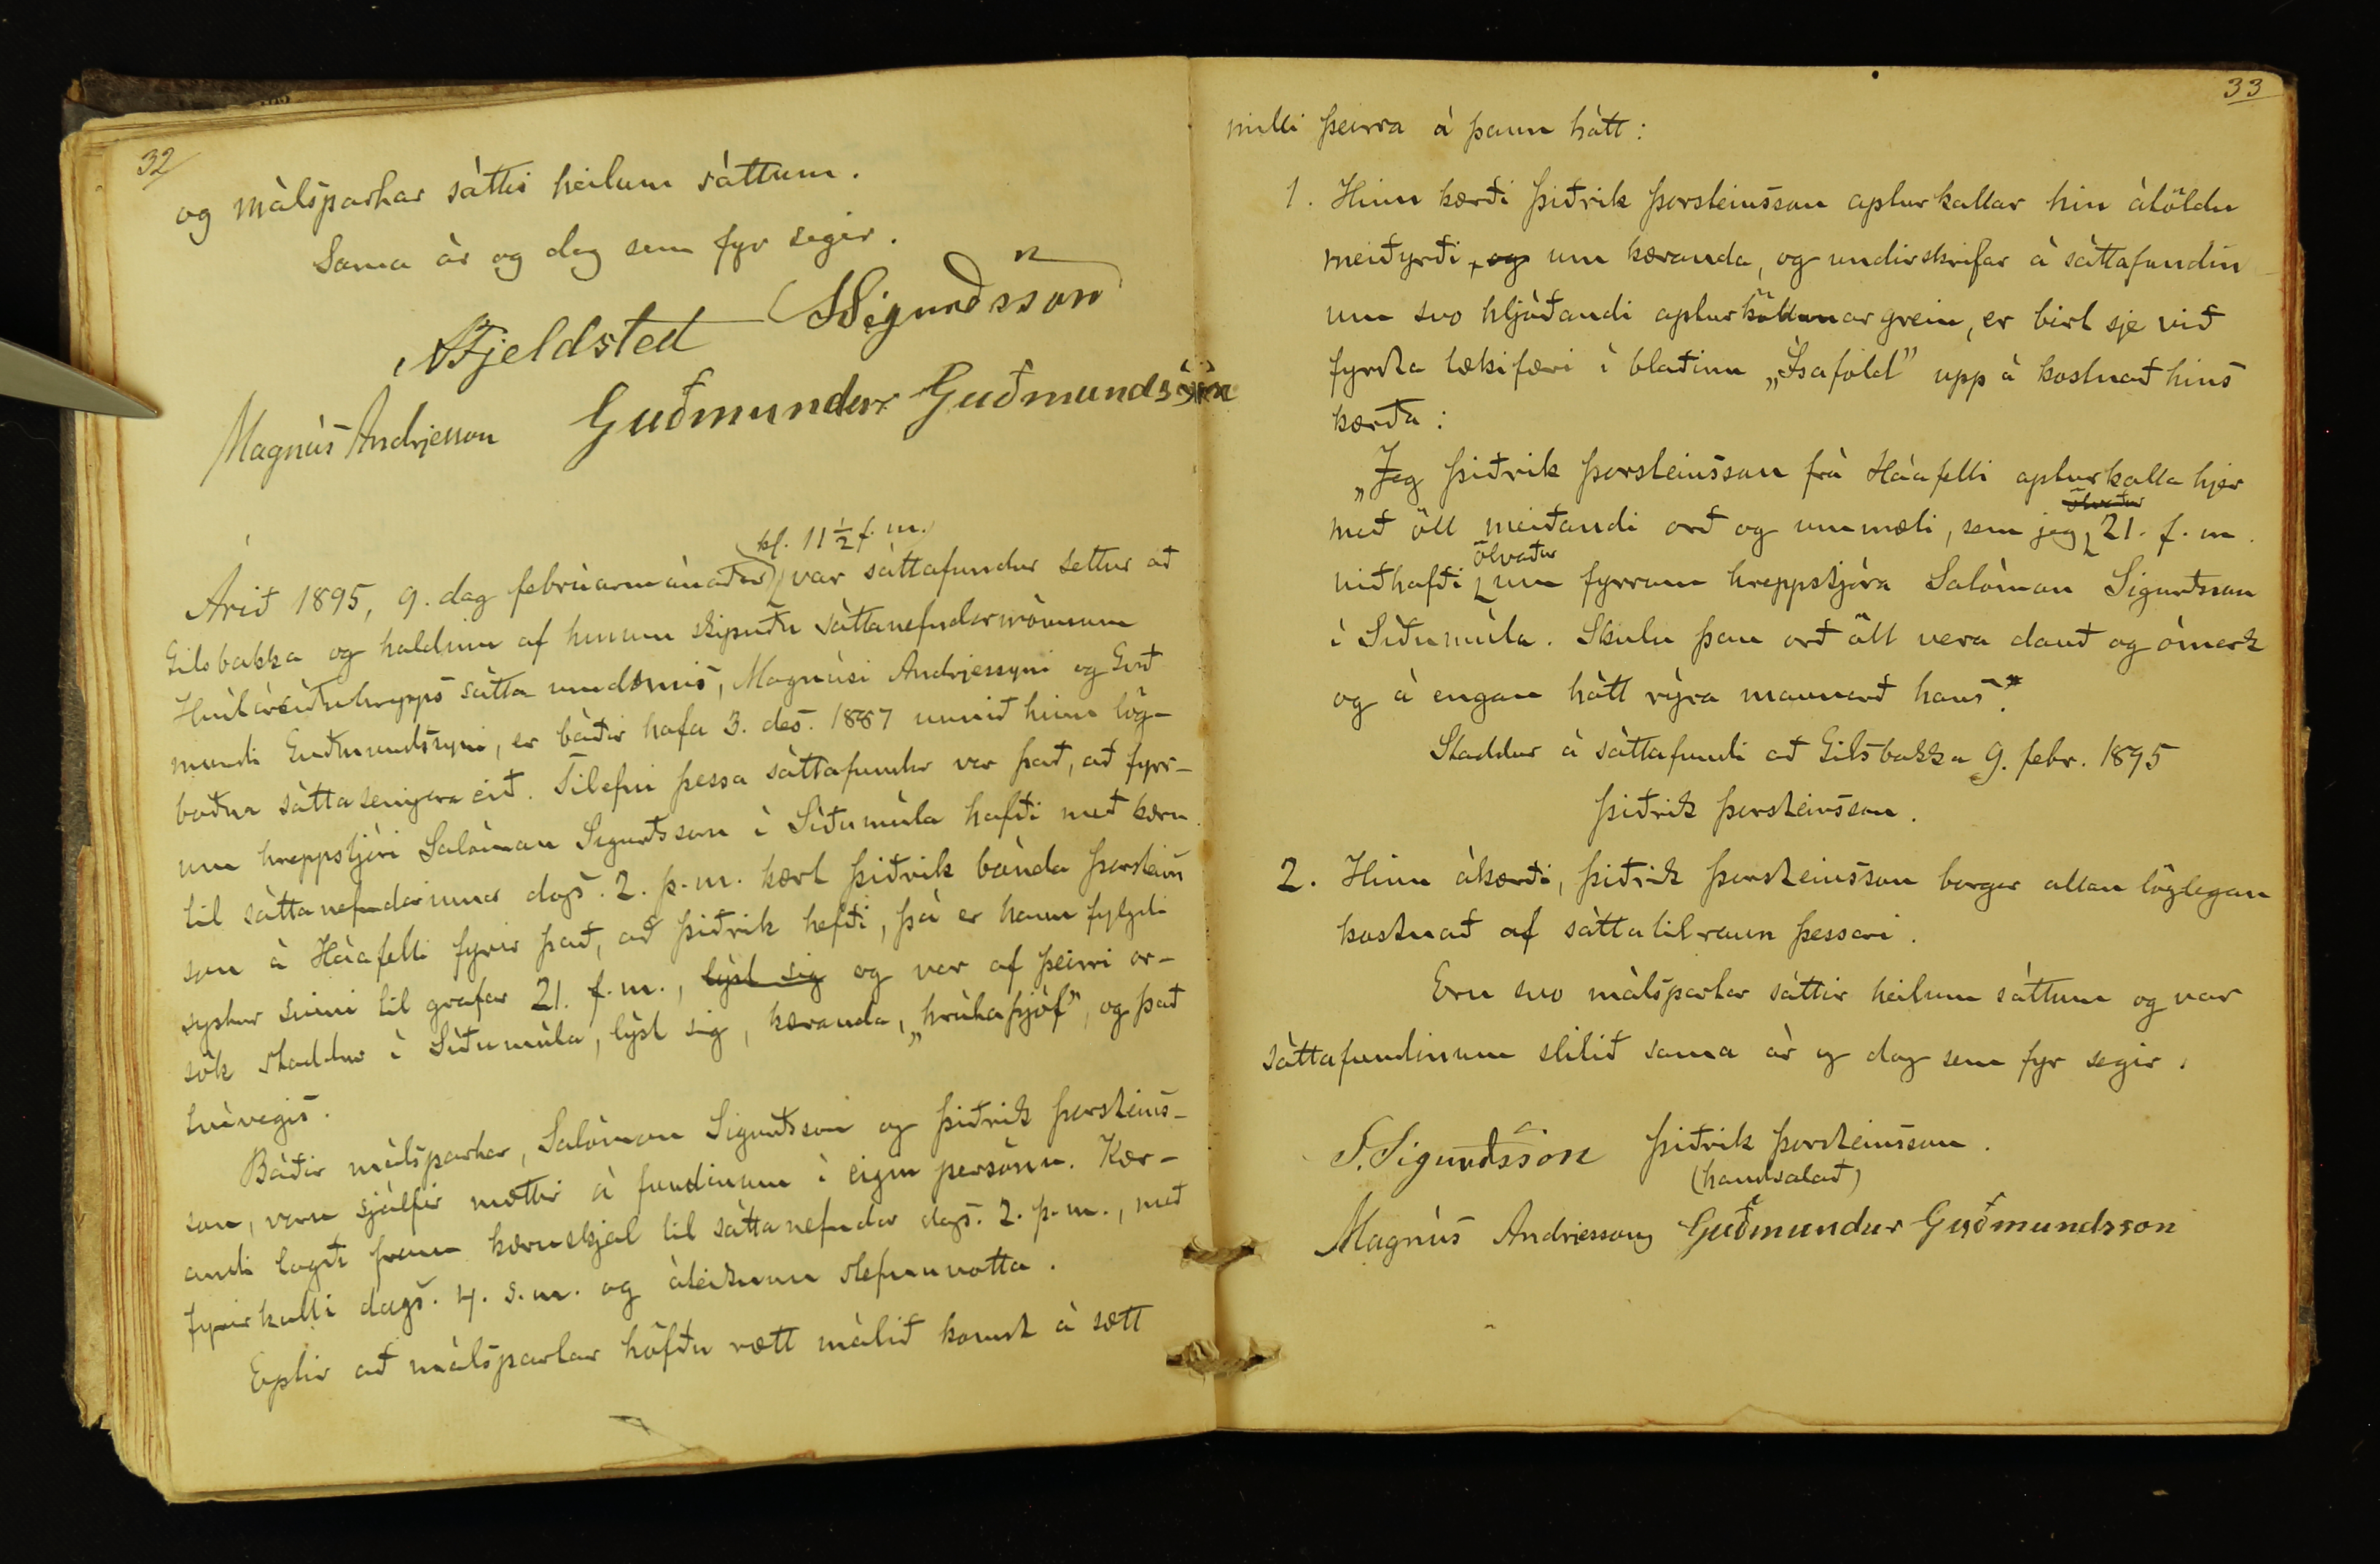 32
og málspartar sáttir heilum sáttum.
Sama ár og dag sem fyr segir.
AFjeldsted SSigurðsson
Magnús Andrjesson Guðmundur Guðmundsson
kl. 11 1/2 f. m.
Árið 1895, 9. dag febrúarmánaðar, var sáttafundur settur að
Gilsbakka og haldinn af hinum skipuðu sáttanefndarmönnum
Hvítársíðuhrepps sátta umdæmis, Magnúsi Andrjessyni og Guð
mundi Guðmundssyni, er báðir hafa 3. des. 1887 unnið hinn lög-
boðna sáttasemjara eið. Tilefni þessa sáttafundar var það, að fyrr-
um hreppstjóri Salómon Sigurðsson í Síðumúla hafði með kæru
til sáttanefndarinnar dags. 2. þ. m. kært Þiðrik bónda Þorsteins
son á Háafelli fyrir það, að Þiðrik hefði, þá er hann fylgdi
systur sinni til grafar 21. f. m., lýst sig og var af þeirri or-
sök staddur í Síðumúla, lýst sig, kæranda, „hrútaþjóf", og það
tvívegis.
Báðir málspartar, Salómon Sigurðsson og Þiðrik Þorsteins-
son, voru sjálfir mættir á fundinum í eigin persónu. Kær-
andi lagði fram kæruskjal til sáttanefndar dags. 2. þ. m., með
fyrirkalli dags. 4. s. m. og áteiknun stefnuvotta.
Eptir að málspartar höfðu rætt málið komst á sætt
33
milli þeirra á þann hátt:
1. Hinn kærði Þiðrik Þorsteinsson apturkallar hin átöldu
meiðyrði, og um kæranda, og undirskrifar á sáttafundin
um svo hljóðandi apturköllunargrein, er birt sje við
fyrsta tækifæri í blaðinu „Ísafold" upp á kostnað hins
kærða:
„Jeg Þiðrik Þorsteinsson frá Háafelli apturkalla hjer
ölvaður
með öll meiðandi orð og ummæli, sem jeg 21. f. m.
ölvaður
viðhafði um fyrrum hreppstjóra Salómon Sigurðsson
í Síðumúla. Skulu þau orð öll vera dauð og ómerk
og á engan hátt rýra mannorð hans."
Staddur á sáttafundi að Gilsbakka 9. febr. 1895
Þiðrik Þorsteinsson.
2. Hinn ákærði, Þiðrik Þorsteinsson borgar allan löglegan
kostnað af sáttatilraun þessari.
Eru svo málspartar sáttir heilum sáttum og var
sáttafundinum slitið sama ár og dag sem fyr segir.
S. Sigurðsson Þiðrik Þorsteinsson.
(handsalað)
Magnús Andrjesson Guðmundur Guðmundsson